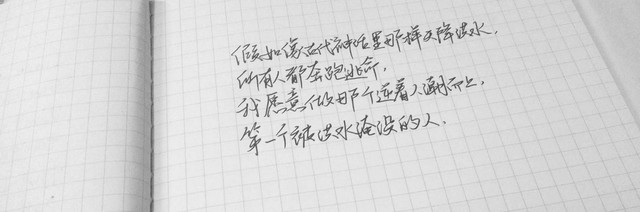 假如像古代神话里那样天降洪水，
所有人都奔跑逃命，
我愿意做那个逆着人潮而上，
第一个被洪水淹没的人．